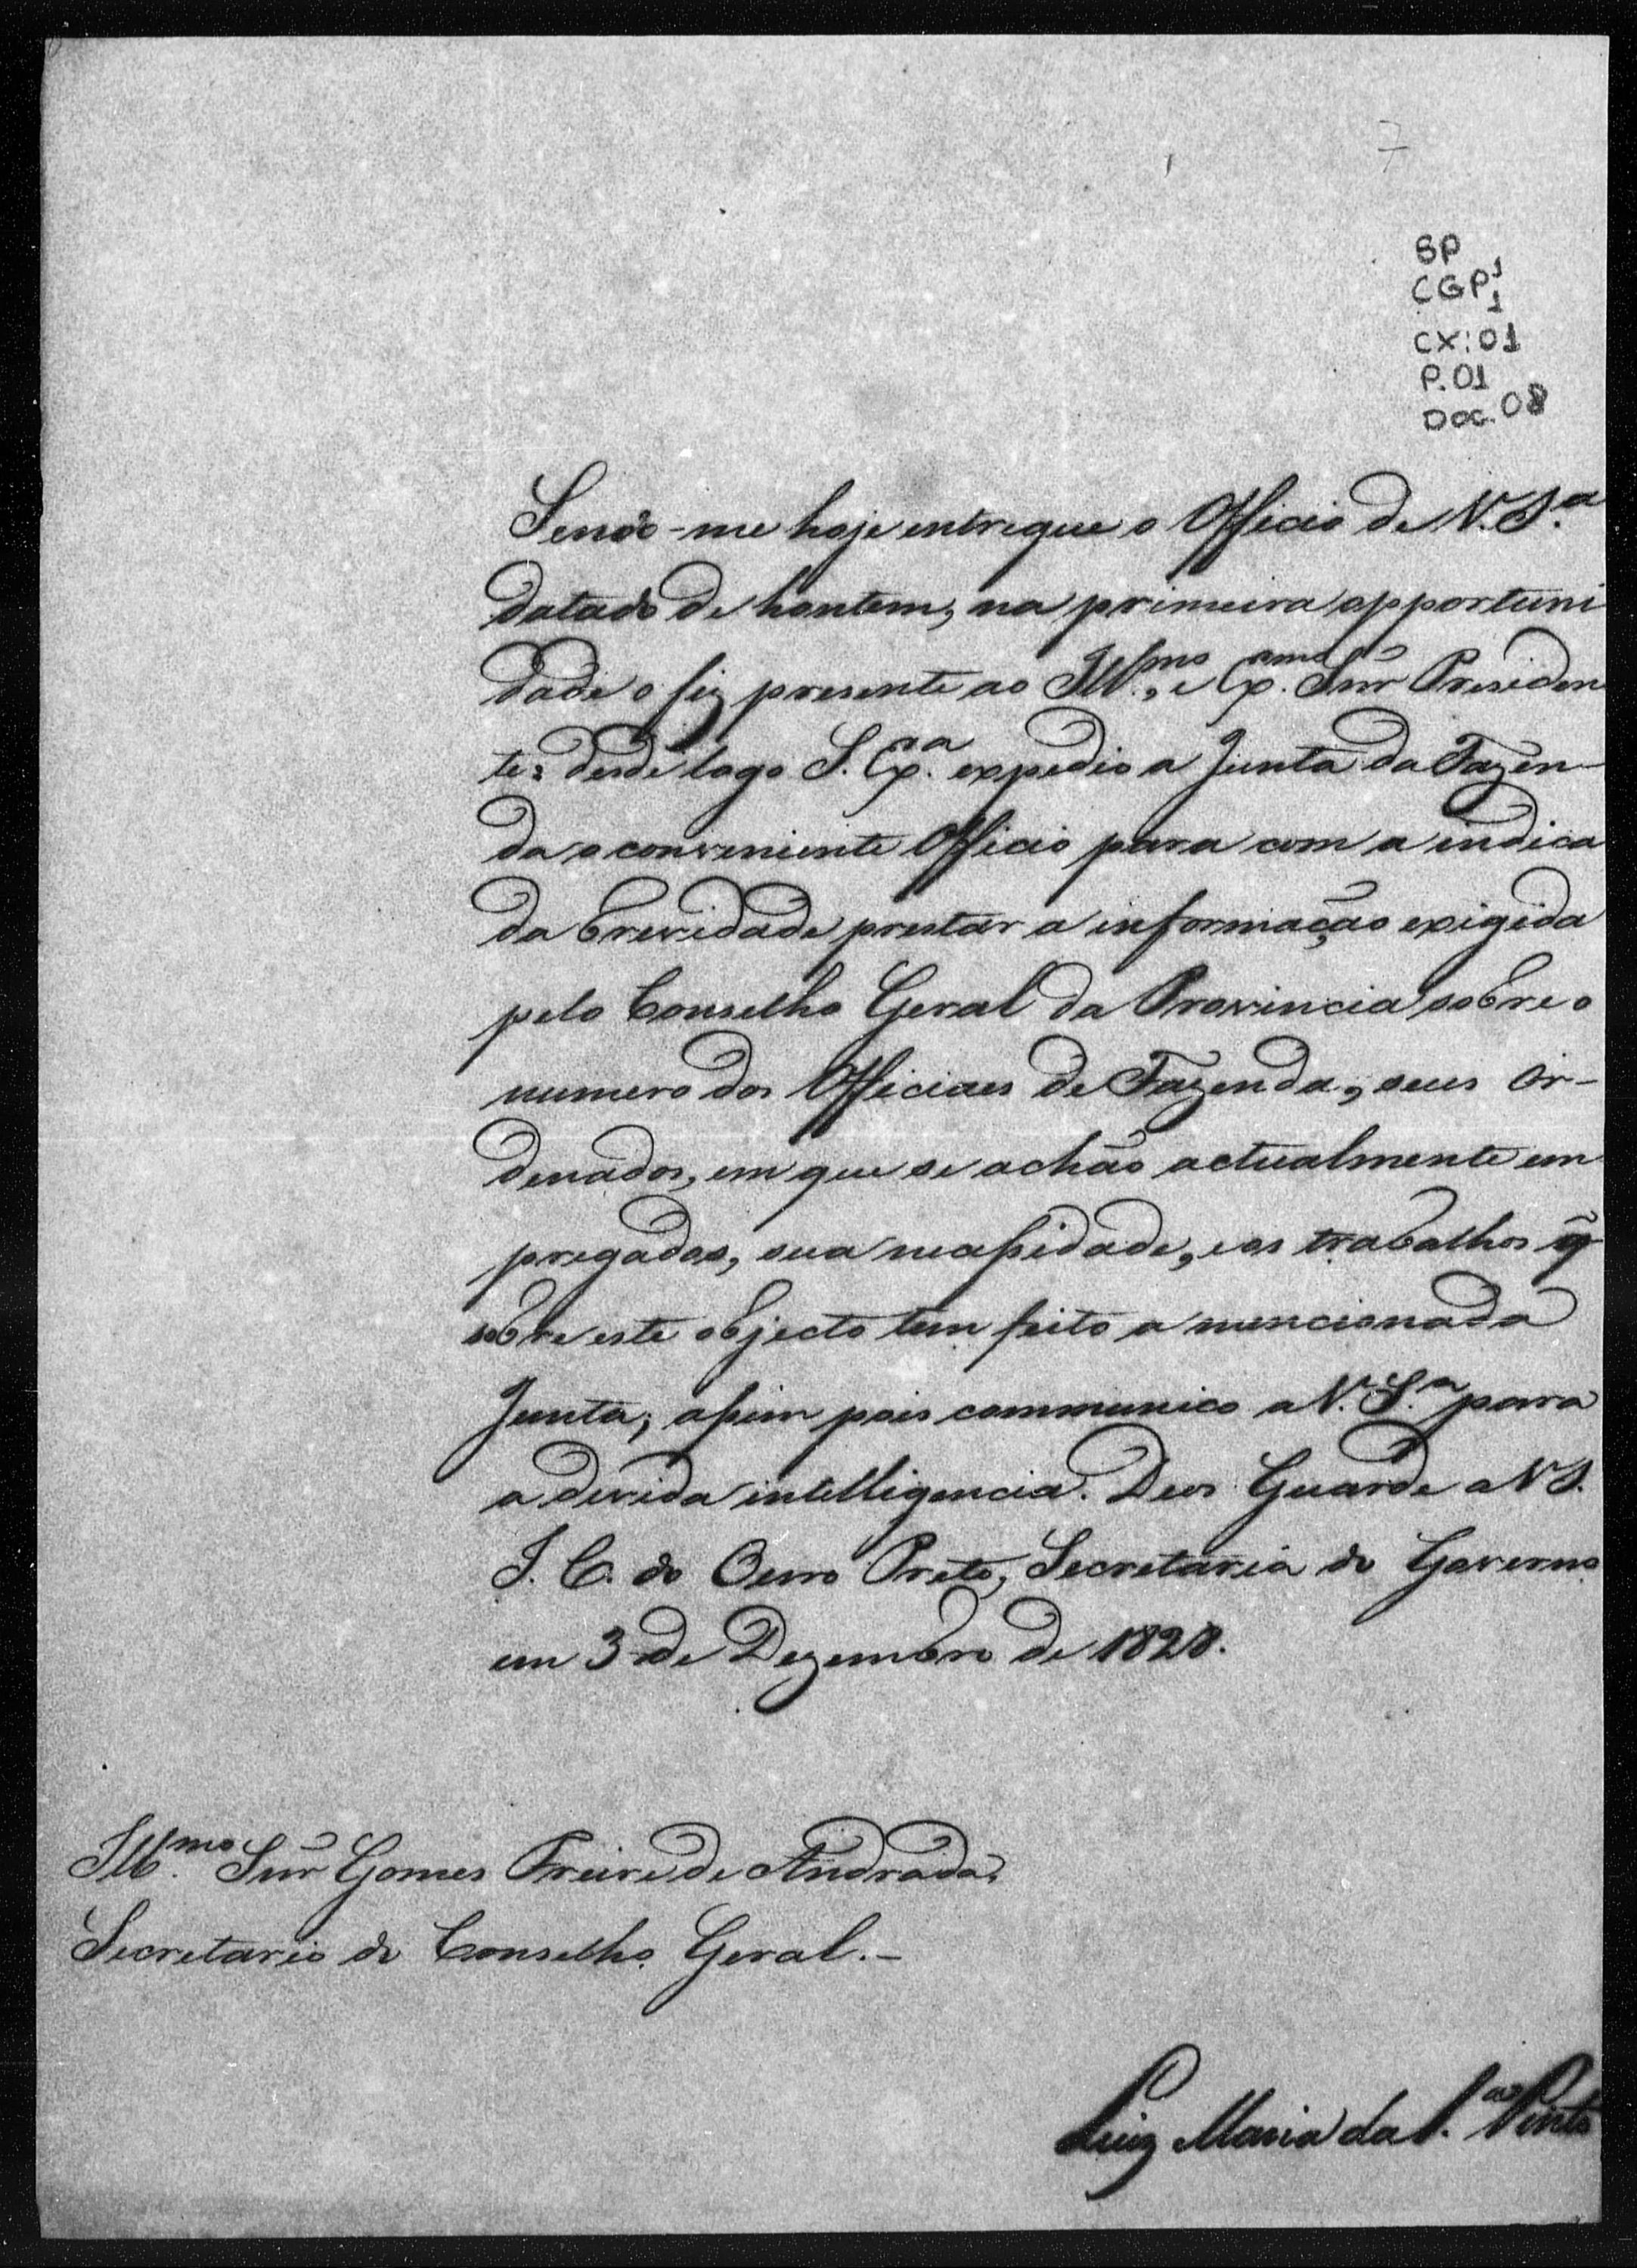 7
SP
CGP 1
1
CX: 01
P. 01
Doc. 08
Sendo-me hoje entregue o Officio de V. S.ª
datado de hontem, na primeira opportuni
dade o fiz presente ao Ill.mo, e Ex.mo Snr Presiden
te: desde logo S. Ex.ª expedio a Junta da Fazen-
da o conveniente Officio para com a indica
da brevidade prestar a informação exigida
pelo Conselho Geral da Provincia sobre o
numero dos Officiaes de Fazenda, seus Or-
denados, em que se achão actualmente em
pregados, sua necessidade, e os trabalhos q̃
sobre este objecto tem feito a mencionada
Junta; assim pois communico a V. S.ª para
a devida intelligencia. Deos Guarde a V S.
I. C. do Ouro Preto, Secretaria do Governo
em 3 de Dezembro de 1828.
Ill.mo Snr Gomes Freire de Andrada,
Secretario do Conselho Geral.-
Luiz Maria da S.ª Pinto